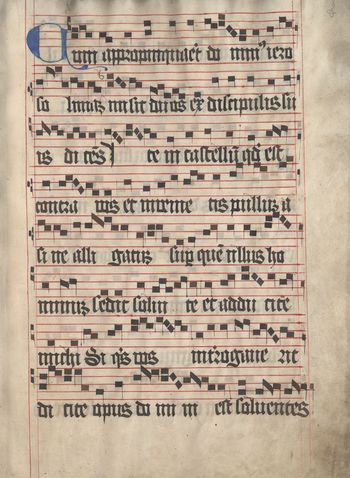 Cum appropinquaret do min9 iero
so limaz misit duos ex discipulis su
is di ces ite in castellu qd est
contra vos et inuenie tis pulluz a
si ne alli gatuz sup que nllus ho
minuz sedit solui te et addu cite
michi Si qs vos intrrogaue rit
di cite opus do mi ni est soluentes